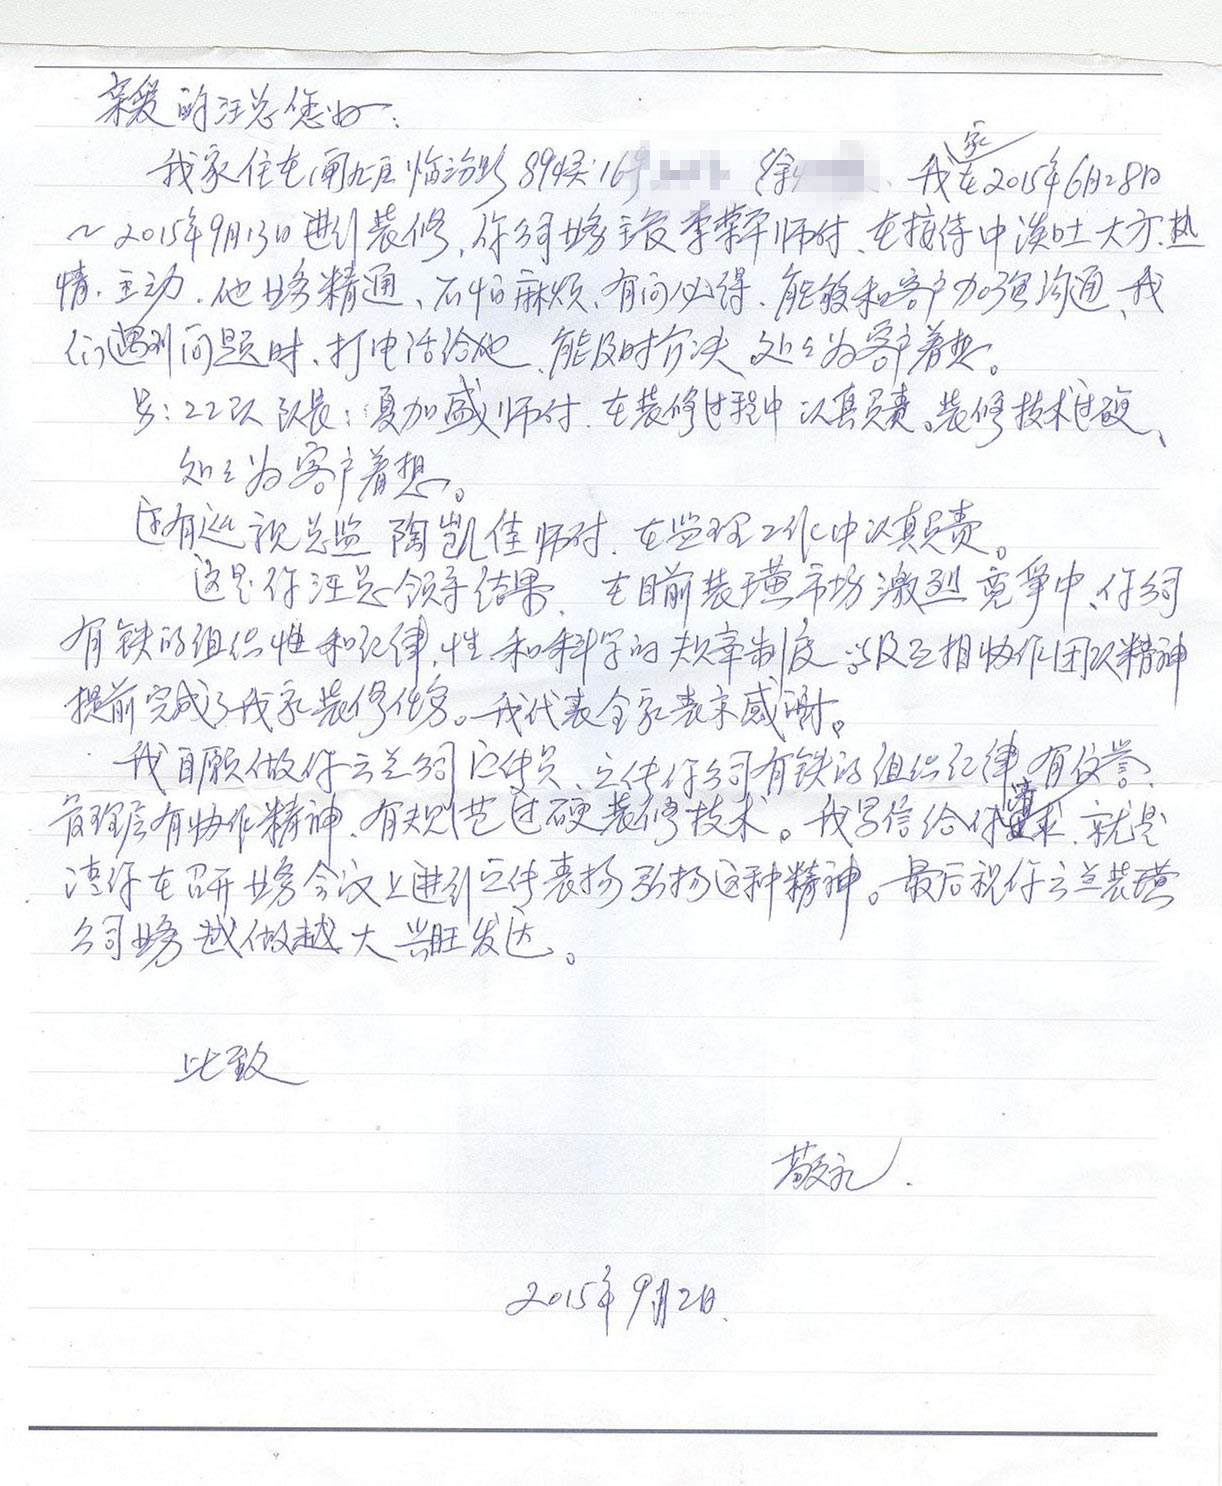 亲爱的汪总您好：
我家住在闸北区临汾路894弄16号 徐 我家在2015年6月28日
～2015年9月13日进行装修，你公司业务主管李荣平师付、在接待中谈吐大方、热
情、主动、他业务精通、不怕麻烦、有问必得、能够和客户加强沟通、我
们遇到问题时、打电话给他、能及时介决、处处为客户着想。
另：22队队长：夏加盛师付、在装修过程中认真负责。装修技术过硬、
处处为客户着想。
还有巡视总监陶凯佳师付、在监理工作中认真负责。
这是你汪总领导结果、在目前装璜市场激烈竞争中、你公司
有铁的组织性和纪律性、和科学的规章制度、以及互相协作团队精神
提前完成了我家装修任务。我代表全家表示感谢。
我自愿做你云兰公司宣传员、宣传你公司有铁的组织纪律、有信誉、
管理层有协作精神、有规范过硬装修技术。我写信给你要求、就是
请你在召开业务会议上进行宣传表扬弘扬这种精神。最后祝你云兰装璜
公司业务越做越大兴旺发达。
此致
敬礼.
2015年9月2日.